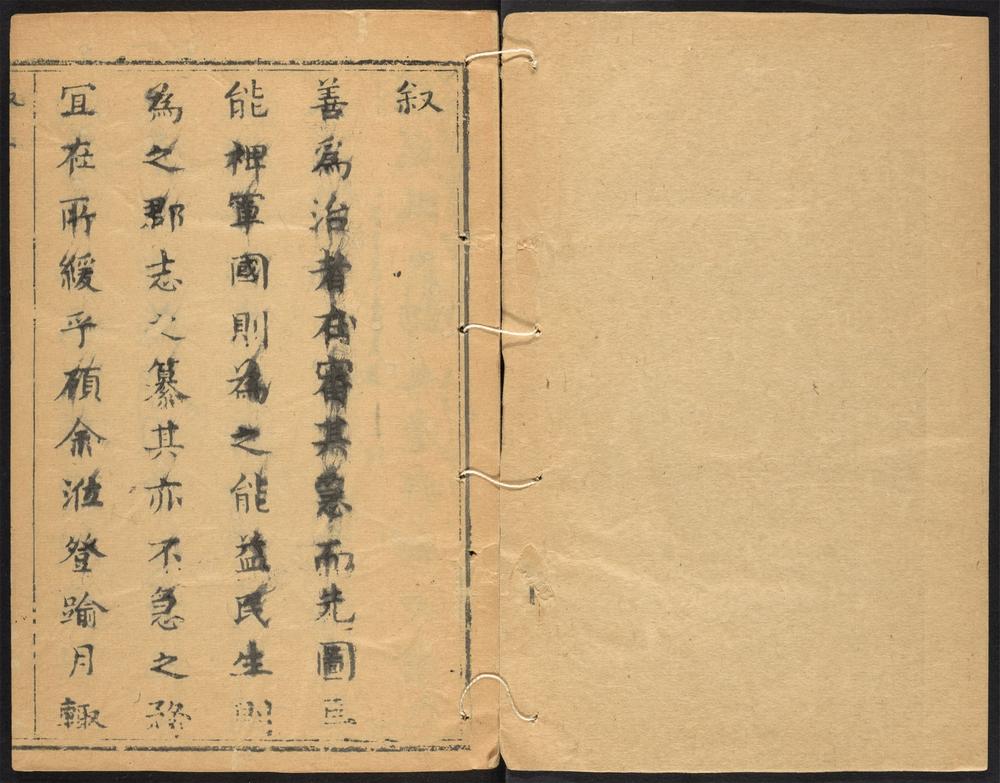 叙
善爲治者在審其急而先圖
能裨軍國則為之能益民生則
為之郡志之纂其亦不急之務
宜在所緩乎頋余涖登踰月輙